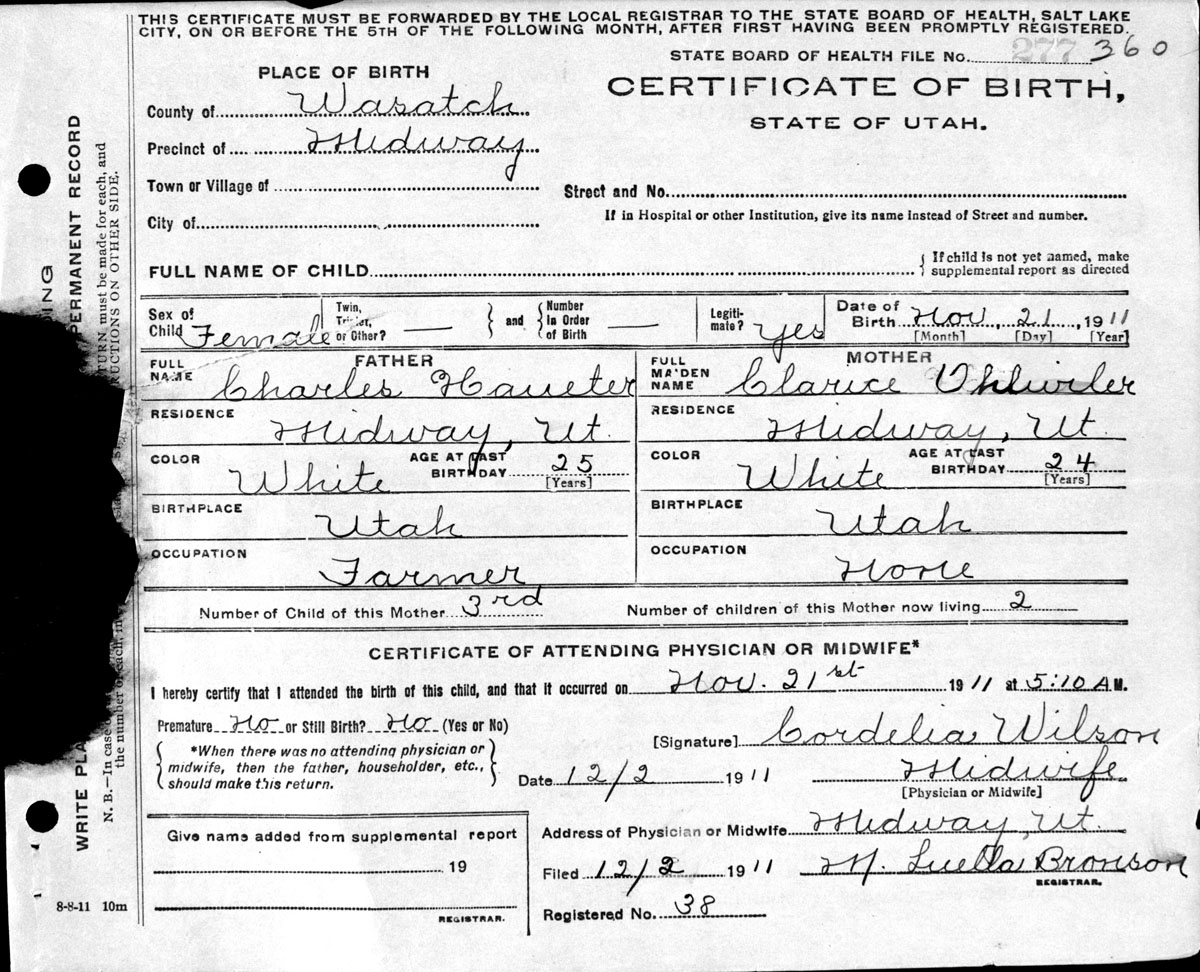 THIS CERTIFICATE MUST BE FORWARDED BY THE LOCAL REGISTRAR TO THE STATE BOARD OF HEALTH, SALT LAKE
CITY, ON OR BEFORE THE 5TH OF THE FOLLOWING MONTH, AFTER FIRST HAVING BEEN PROMPTLY REGISTERED.
STATE BOARD OF HEALTH FILE No. 277 360
PLACE OF BIRTH
CERTIFICATE OF BIRTH,
STATE OF UTAH.
County of Wasatch
Precinct of Midway
Town or Village of
Street and No.
City of
If in Hospital or other Institution, give its name instead of Street and number.
FULL NAME OF CHILD
{ If child is not yet named, make
supplemental report as directed
Sex of Child Female
Twin, Triplet, or Other? —
and
Number in Order of Birth —
Legitimate? Yes
Date of Birth Nov, 21, 1911
[Month] [Day] [Year]
FATHER
FULL NAME Charles Haueter
RESIDENCE Midway, Ut.
COLOR White AGE AT LAST BIRTHDAY 25
[Years]
BIRTHPLACE Utah
OCCUPATION Farmer
MOTHER
FULL MAIDEN NAME Clarice Ohlwiler
RESIDENCE Midway, Ut.
COLOR White AGE AT LAST BIRTHDAY 24
[Years]
BIRTHPLACE Utah
OCCUPATION None
Number of Child of this Mother 3rd Number of children of this Mother now living 2
CERTIFICATE OF ATTENDING PHYSICIAN OR MIDWIFE*
I hereby certify that I attended the birth of this child, and that it occurred on Nov. 21st 1911 at 5:10 A M.
Premature No or Still Birth? No (Yes or No)
*When there was no attending physician or
midwife, then the father, householder, etc.,
should make this return.
[Signature] Cordelia Wilson
Date 12/2 1911 Midwife
[Physician or Midwife]
Give name added from supplemental report
19
REGISTRAR.
Address of Physician or Midwife Midway, Ut.
Filed 12/2 1911 M. Luella Bronson
REGISTRAR.
Registered No. 38
8-8-11 10m
WRITE PLA
DING
PERMANENT RECORD
N. B.—In case o
TURN must be made for each, and
the number of each, in
RUCTIONS ON OTHER SIDE.